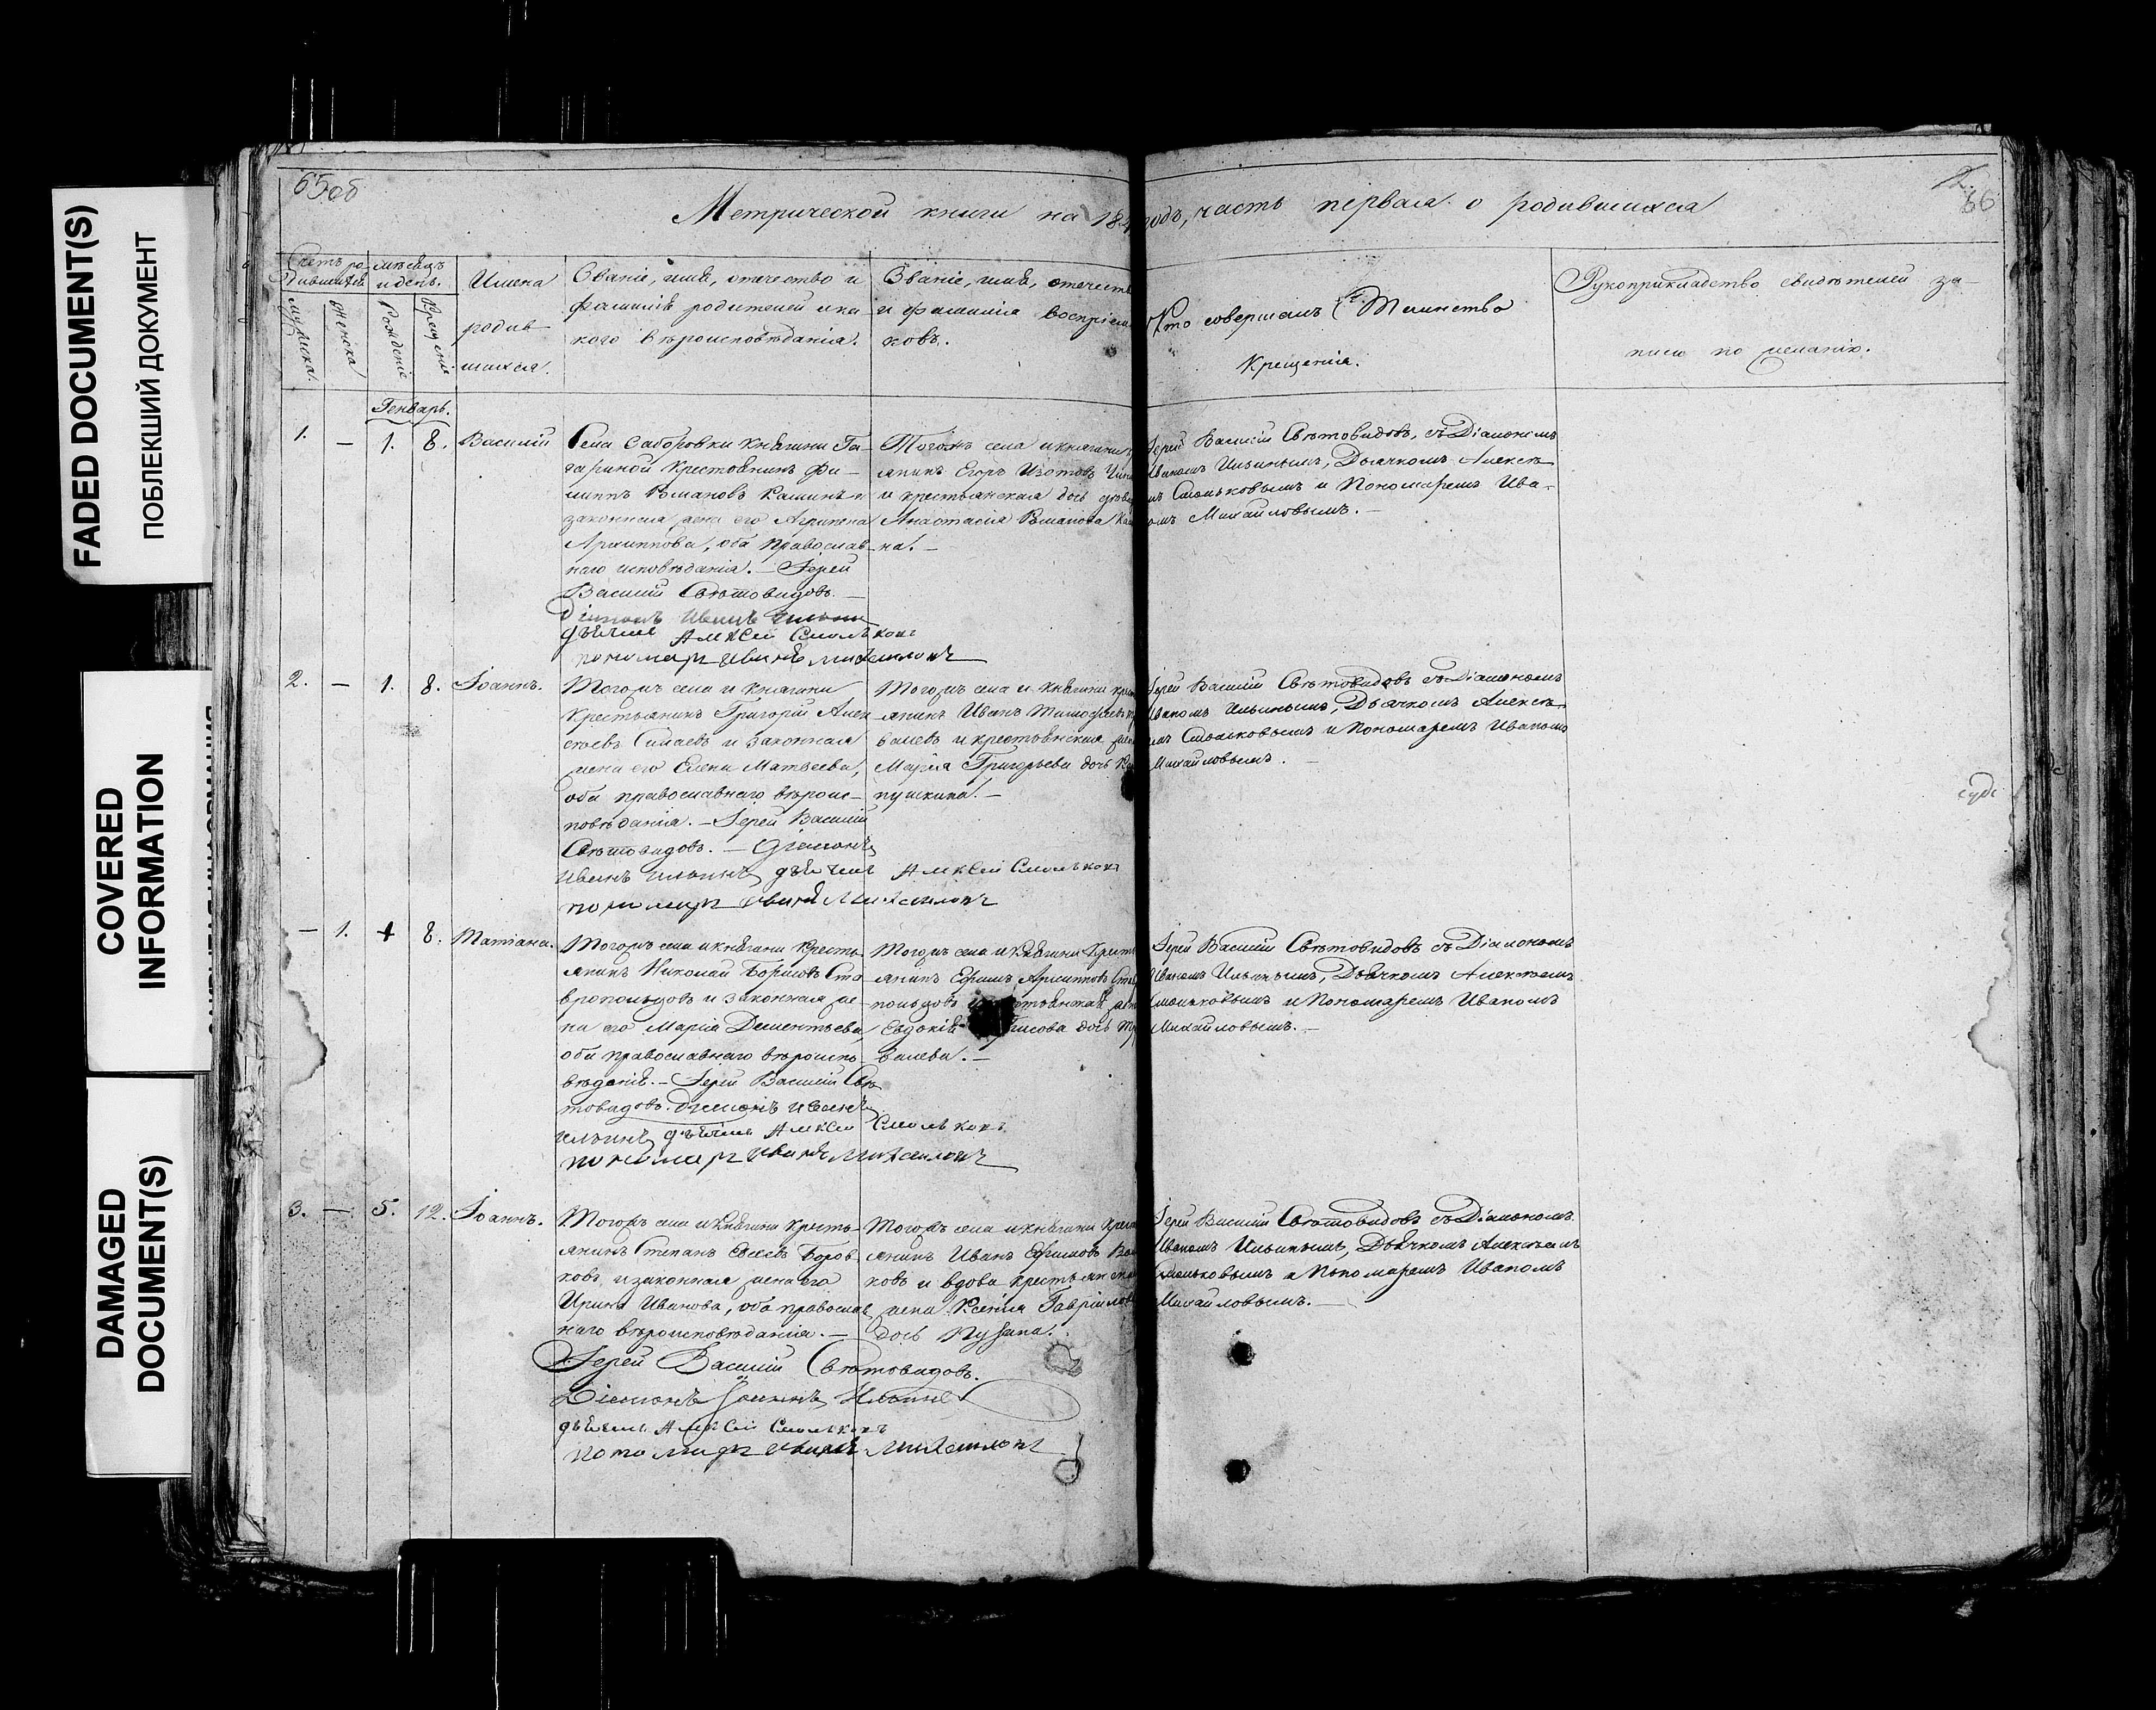 FADED DOCUMENT(S)
ПОБЛЕКШИЙ ДОКУМЕНТ
COVERED
INFORMATION
DAMAGED
DOCUMENT(S)
65 об
66
Метрической книги на 184 годъ, часть первая о родившихся
Счетъ ро-
дившихся
мужеска.
женска
мѣсяцъ
и день.
Рожденіе
Крещенія.
Имена
родив
шихся.
Званіе, имя, отечество и
фамилія родителей и ка
кого вѣроисповѣданія.
Званіе, имя, отечест
и фамилія воспріем
ковъ.
Кто совершалъ Таинство
Крещенія.
Рукоприкладство свидѣтелей за-
писи по желанію.
Генварь.
1. — 1. 8. Василій
Села Саборовки Княгини Га-
гариной крестьянинъ Фи-
липпъ Романовъ Калинъ и
законная жена его Агрипена
Архиппова, оба православ-
наго исповѣданія. — Іерей
Василій Свѣтовидовъ. —
Діаконъ Иванъ Ильинъ
дьячекъ Алексѣй Смольковъ
пономарь Иванъ Михайловъ
Тогожъ села и княгини
янинъ Егоръ Изотовъ
и крестьянская дочь дѣви
Анастасія Романова Ка
на. —
Іерей Василій Свѣтовидовъ, съ Діакономъ
Иваномъ Ильинымъ, Дьячкомъ Алексѣ-
мъ Смольковымъ и Пономаремъ Ива-
омъ Михайловымъ. —
2. — 1. 8. Іоаннъ.
Тогожъ села и княгини
крестьянинъ Григорій Алек
сѣевъ Симаевъ и законная
жена его Елена Матвеева,
оба православнаго вѣроис-
повѣданія. — Іерей Василій
Свѣтовидовъ. — Діаконъ
Иванъ Ильинъ дьячекъ Алексѣй Смольковъ
пономарь Иванъ Михайловъ
Тогожъ села и княгини крес
янинъ Иванъ Тимофеевъ
валевъ и крестьянская жен
Марія Григорьева дочь
пушкина. —
Іерей Василій Свѣтовидовъ съ Діакономъ
Иваномъ Ильинымъ, Дьячкомъ Алексѣ-
мъ Смольковымъ и Пономаремъ Иваномъ
Михайловымъ. —
— 1. 4 8. Татіана.
Тогожъ села и княгини кресть-
янинъ Николай Борисовъ Ста
вропольцовъ и законная же-
на его Марія Дементьева,
оба православнаго вѣроиспо-
вѣданія. — Іерей Василій Свѣ-
товидовъ. Діаконъ Иванъ
Ильинъ дьячекъ Алексѣй Смольковъ
пономарь Иванъ Михайловъ
Тогожъ села и княгини крест
янинъ Ефимъ Архиповъ Став
польцовъ и
Евдокія дочь
валева. —
Іерей Василій Свѣтовидовъ съ Діакономъ
Иваномъ Ильинымъ, Дьячкомъ Алексѣемъ
Смольковымъ и Пономаремъ Иваномъ
Михайловымъ. —
3. — 5. 12. Іоаннъ.
Тогожъ села и княгини кресть-
янинъ Степанъ Евсеевъ Боров
ковъ и законная жена его
Ирина Иванова, оба православ
наго вѣроисповѣданія. —
Іерей Василій Свѣтовидовъ.
Діаконъ Іоаннъ Ильинъ
дьячекъ Алексѣй Смольковъ
пономарь Иванъ Михайловъ
Тогожъ села и княгини крес
янинъ Иванъ Ефимовъ
ковъ и вдова крестьянска
жена Ксенія Гавріилов
дочь Пузана.
Іерей Василій Свѣтовидовъ съ Діакономъ
Иваномъ Ильинымъ, Дьячкомъ Алексѣемъ
Смольковымъ и Пономаремъ Иваномъ
Михайловымъ. —